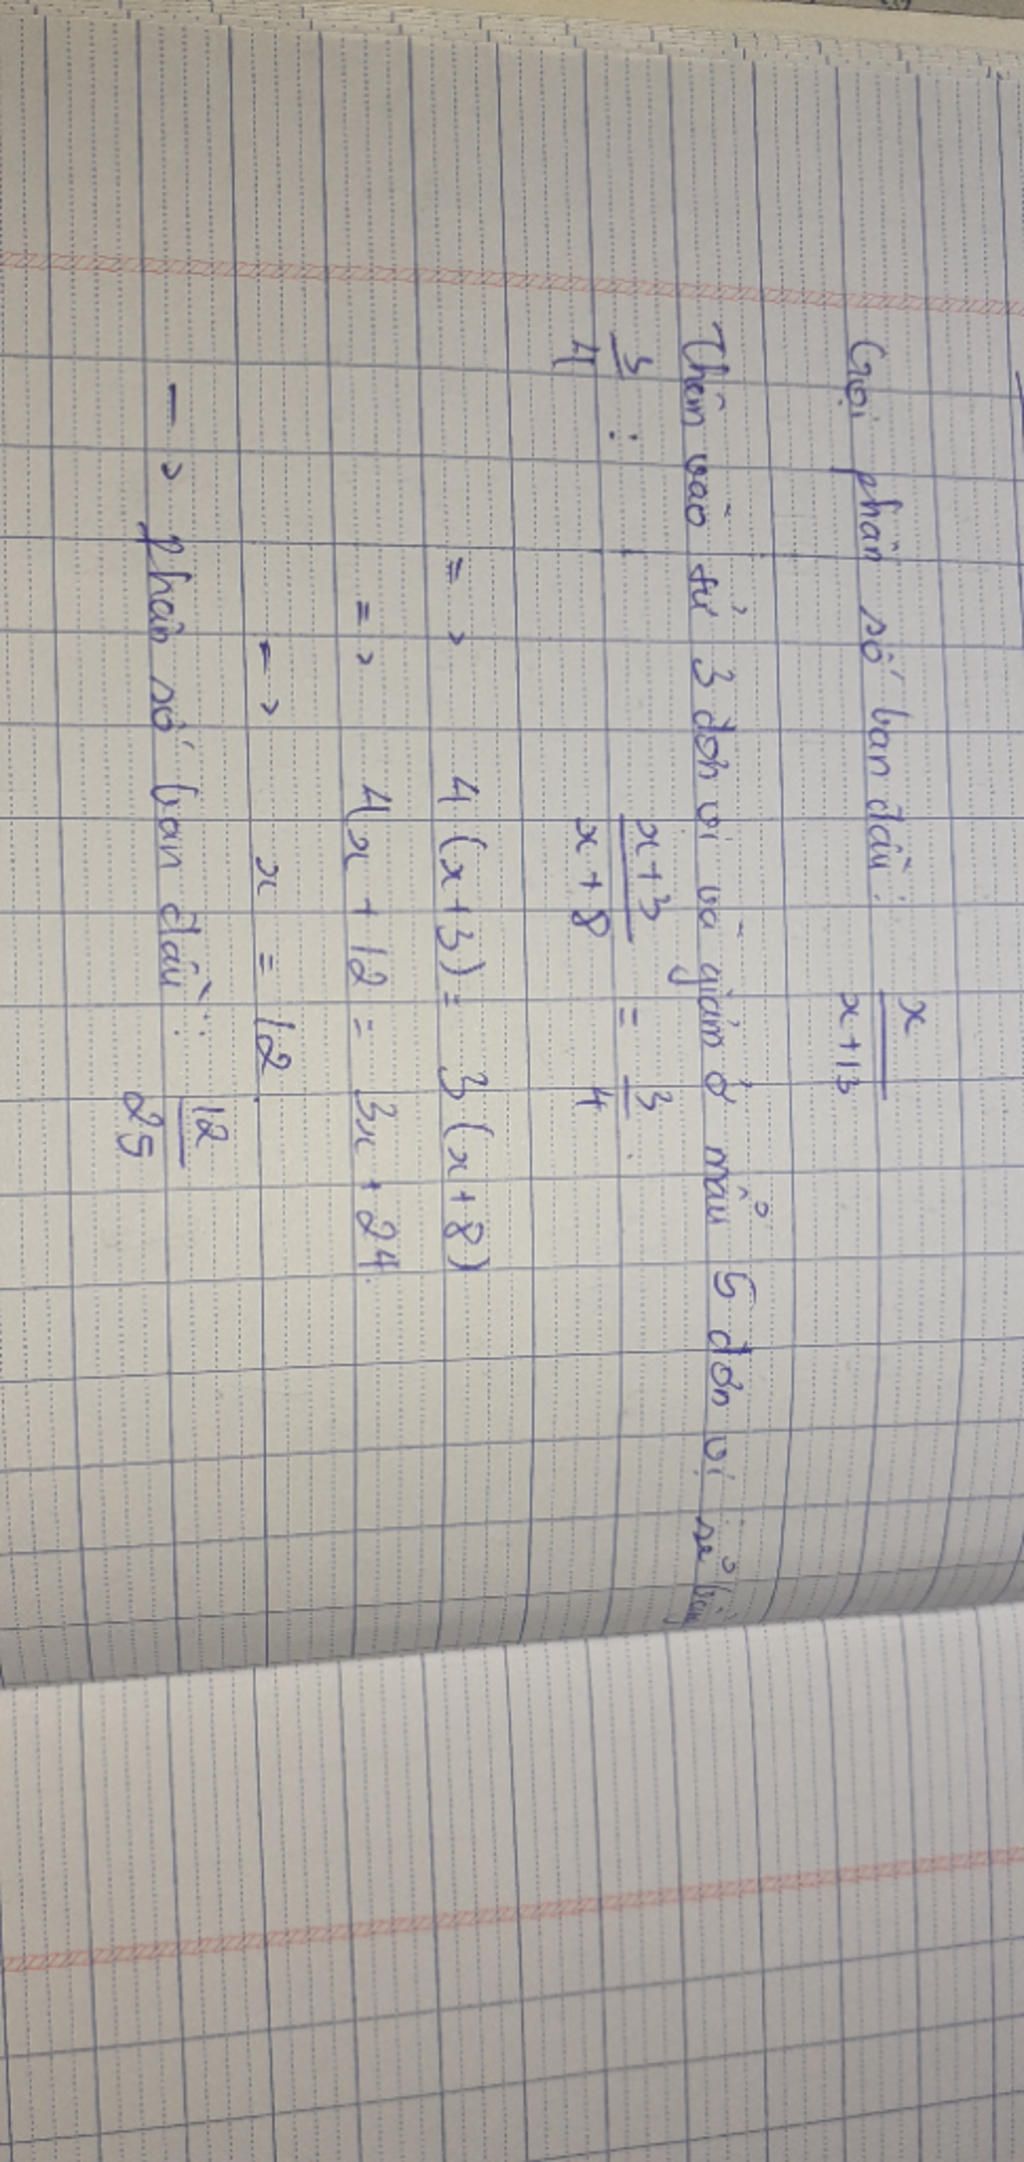 Gọi phân số ban đầu: x/x+13
Thêm vào tử 3 đơn vị và giảm ở mẫu 5 đơn vị sẽ bằng
3/4 :
x+3/x+8 = 3/4
=> 4(x+3) = 3(x+8)
=> 4x + 12 = 3x + 24
=> x = 12
-> phân số ban đầu: 12/25